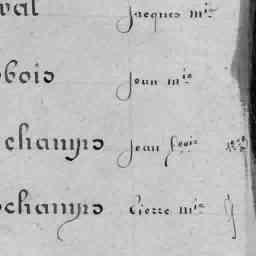 val Jacques m^ie
bois Jean m^ie
champs Jean Louis
champs Pierre m^ie